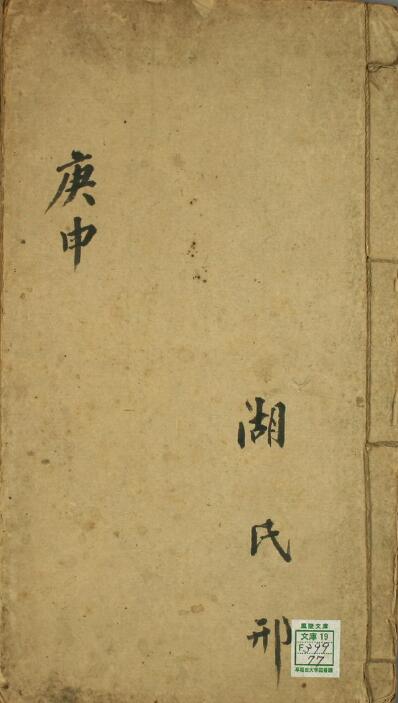 湖氏邢
庚申
風陵文庫
文庫 19
F.399
77
早稲田大学図書館